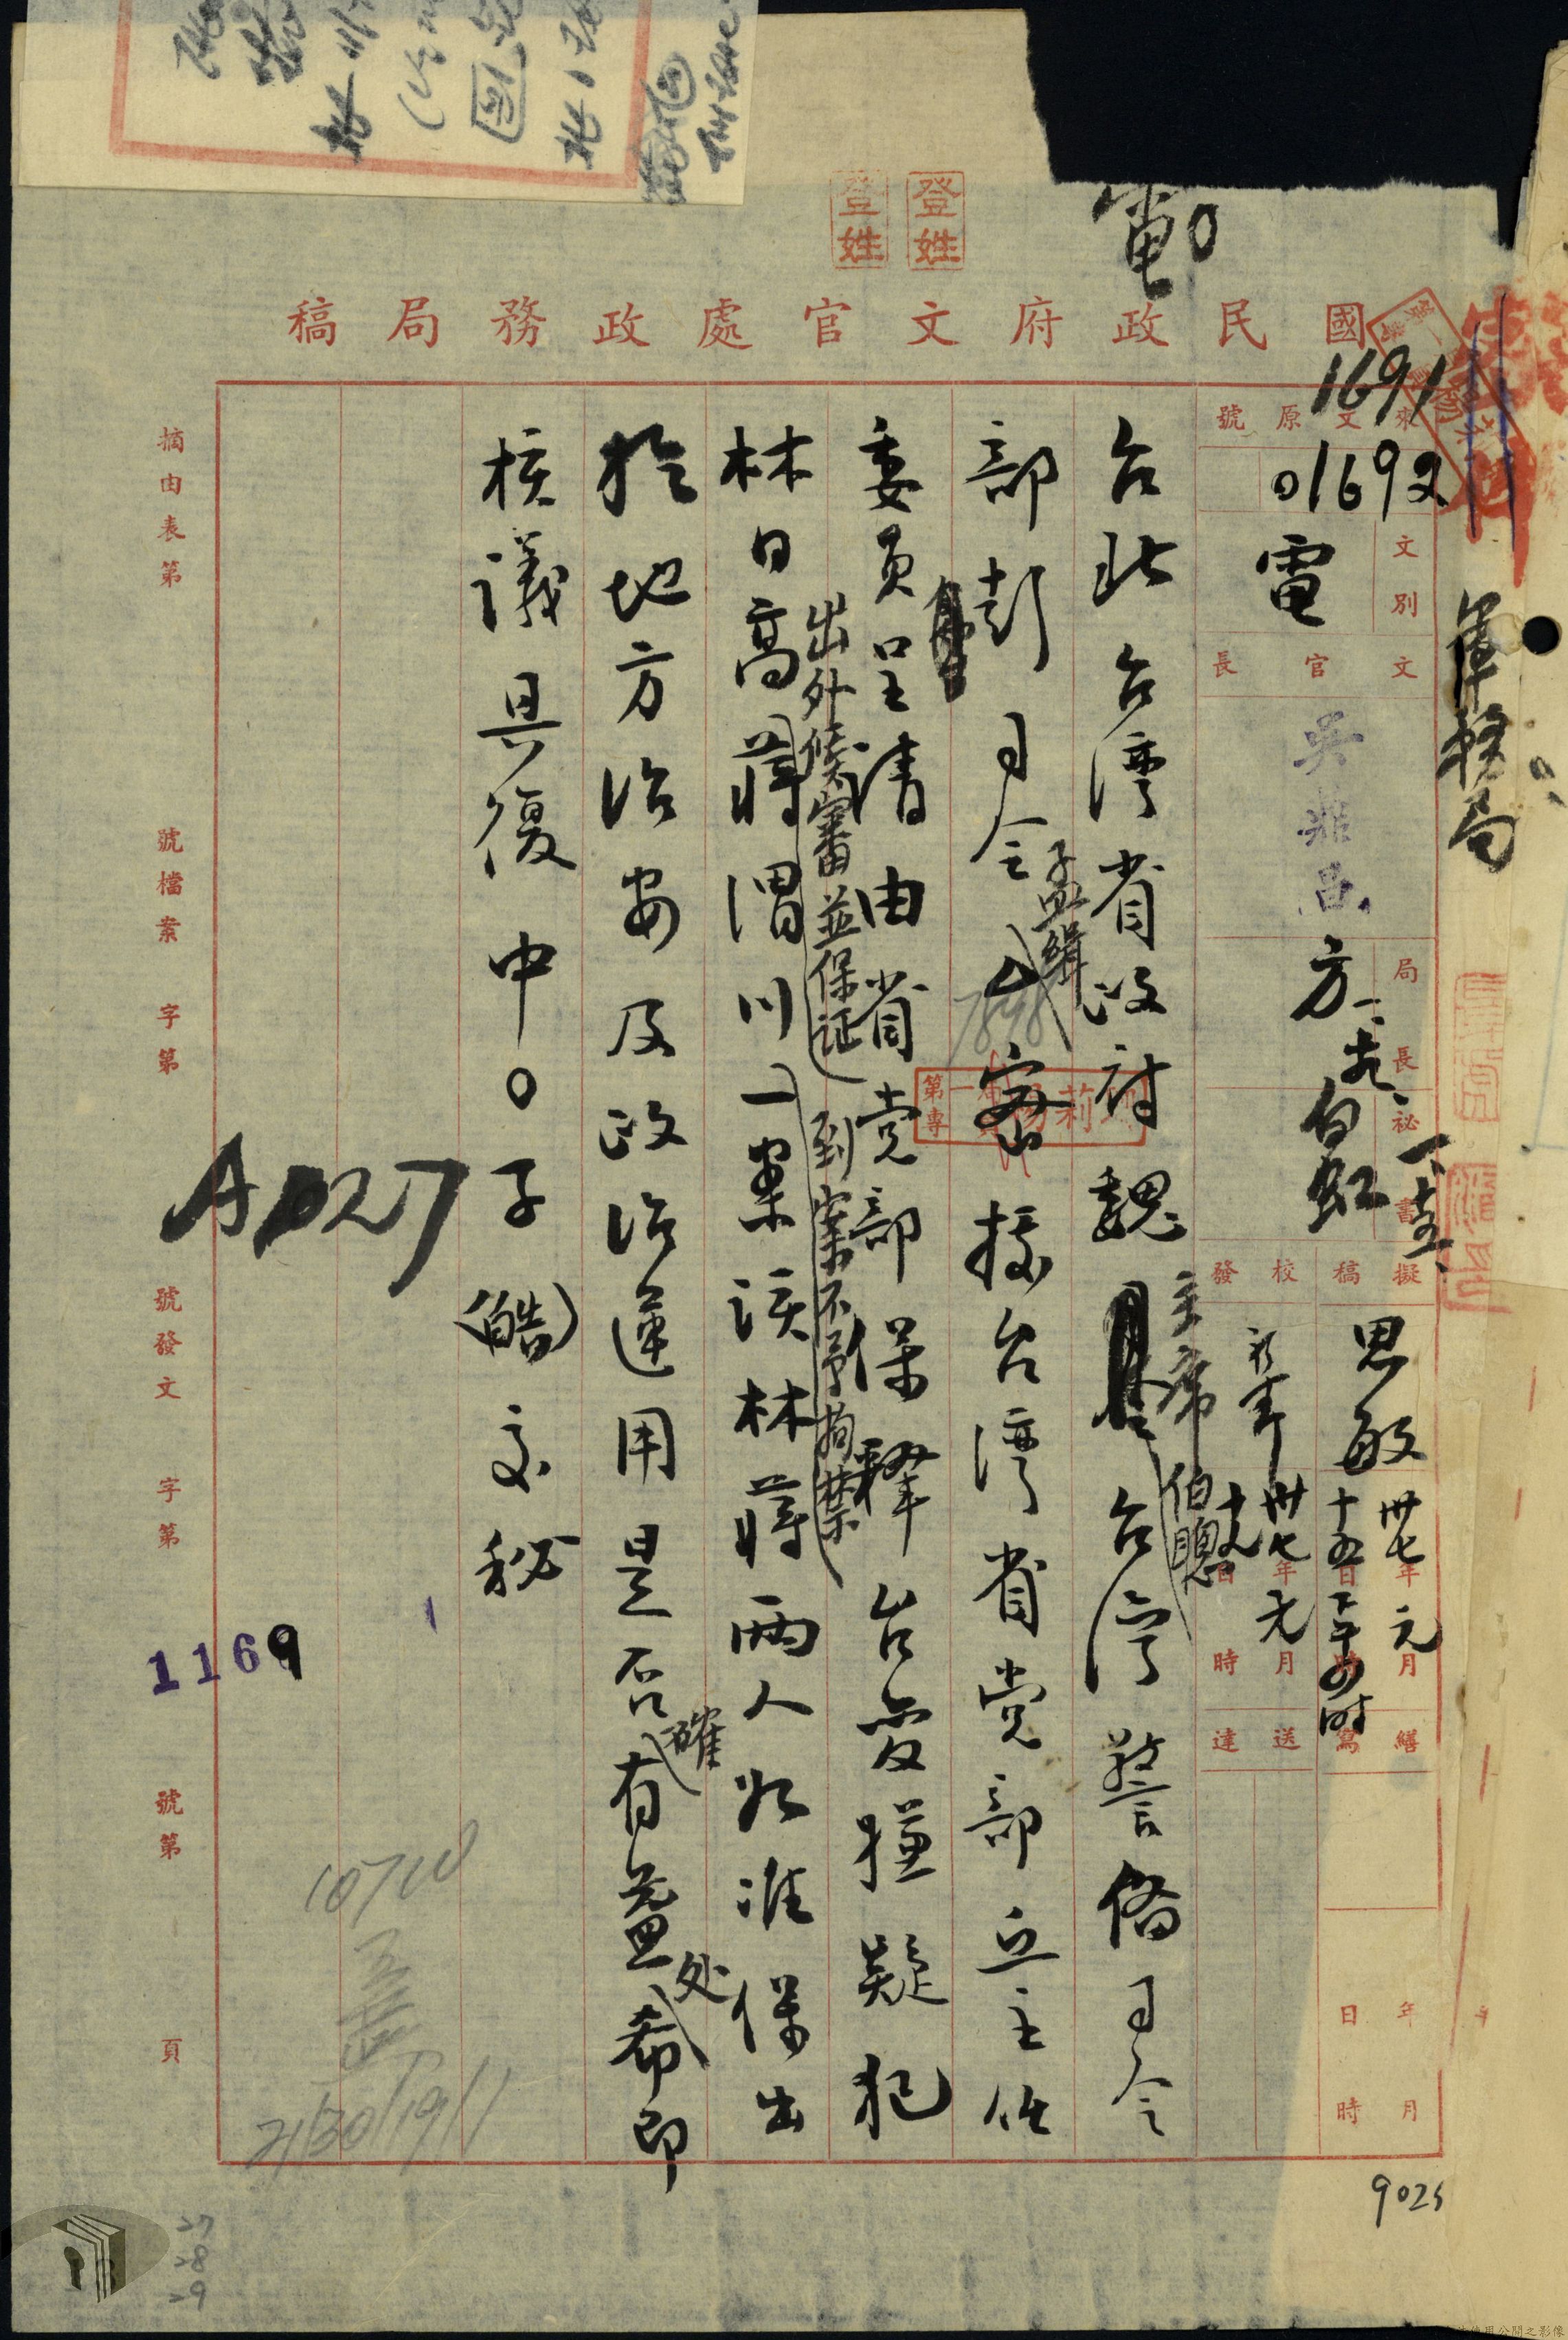 電
國民政府文官處政務局稿
登姓
登姓
來文原號
1691
01692
文別
電
文官長
吳鼎昌
局長
方
一、
秘書
擬稿
思敏
卅七年元月
校發
卅七年元月
十九日
時
繕寫
送達
年月
日時
軍務局
台北台灣省政府魏主席伯聰台灣警備司令
部彭司令孟緝密據台灣省党部丘主任
委員呈請由省党部保釋台變嫌疑犯
出外候審並保证到案不予拘禁
林日高蔣渭川一案該林蔣兩人如准保出
於地方治安及政治運用是否確有益处希即
核議具復中〇子(皓)交秘
A1027
摘由表第
號檔案
字第
號發文
字第
號第
頁
1169
10740
21/30/19/1
9025
27
28
29